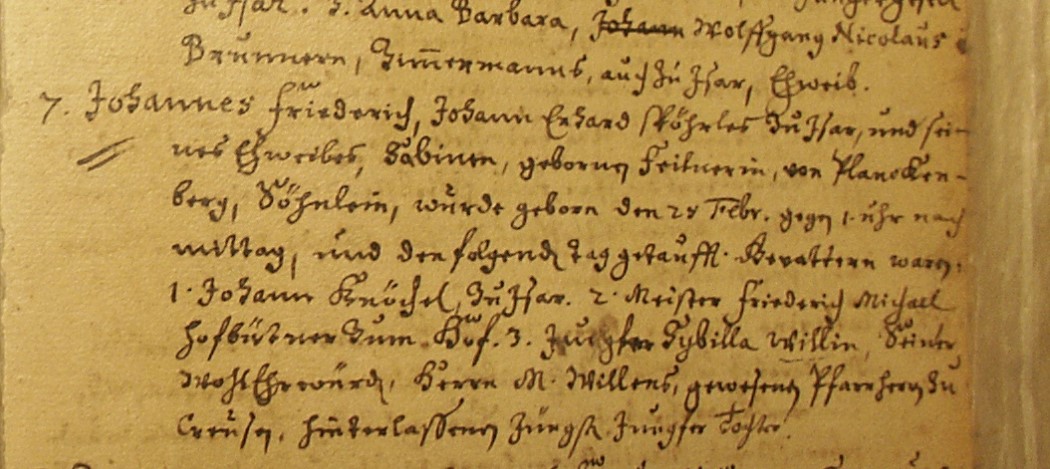 zu Isar. 3. Anna Barbara, Johann Wolffgang Nicolaus
Brunnern, Zim̅ermanns, auch zu Isar, Eheweib.
7. Johannes Friederich, Johann Erhard Köhrles zu Isar, und sei-
nes Eheweibes, Sabinen, gebornen Feilnerin, von Plancken-
berg, Söhnlein, wurde geborn den 28 Febr. gegen 1. uhr nach
mittag, und den folgenden tag getaufft. Gevattern waren,
1. Johann Knöchel, zu Isar. 2. Meister Friederich Michael
Hofbüttner zum Hof. 3. Jungfer Sybilla Willin, Seiner
WohlEhrwürden, Herrn M. Willens, gewesenen Pfarrherrn zu
Creusen, hinterlassenen jüngste Jungfer Tochter.